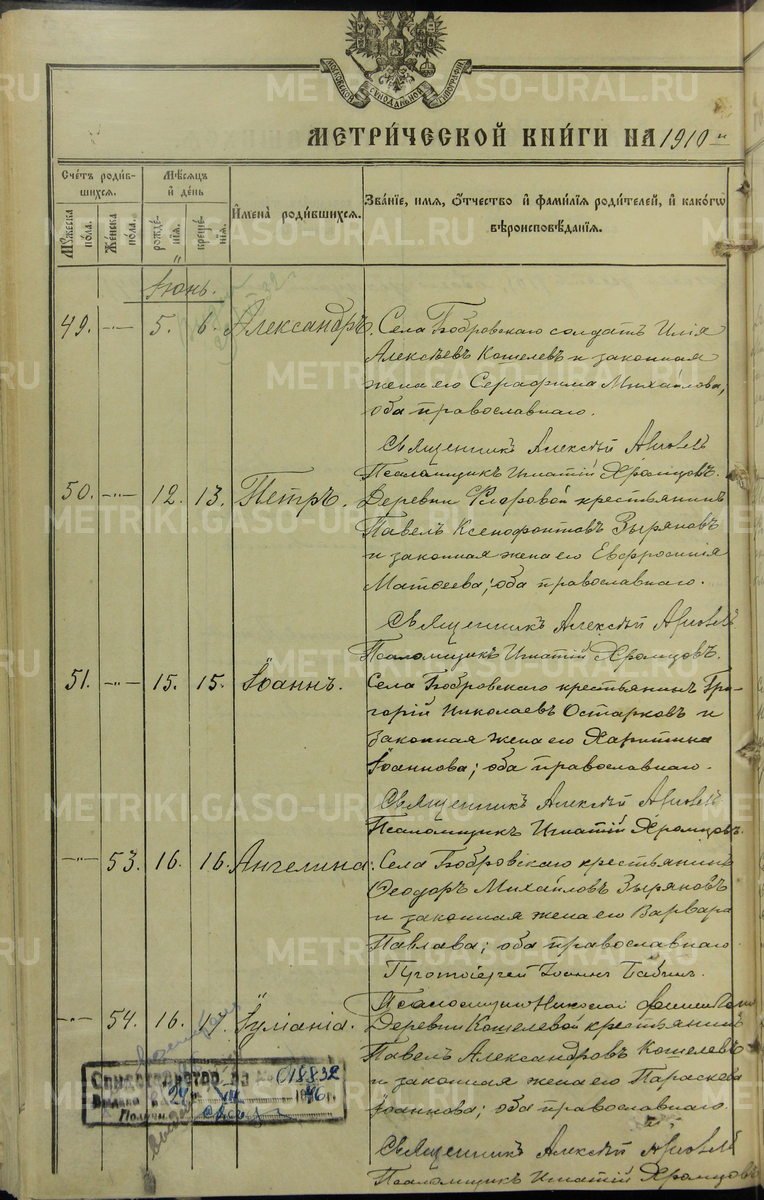 МОСКОВСКОЙ СѴНОДАЛЬНОЙ ТИПОГРАФІИ
METRIKI.GASO-URAL.RU
МЕТРИ́ЧЕСКОЙ КНИ́ГИ НА 1910 г.
Сче́тъ роди́вшихся.
Мѣ́сяцъ и҆ де́нь
И҆мена̀ роди́вшихся.
Зва́нїе, и҆мя, ѻ҆́тчество и҆ фами́лїѧ роди́телей, и҆ како́гѡ
вѣроисповѣ́данїѧ.
Мꙋжеска по́ла.
Же́нска по́ла.
рожде́нїѧ.
креще́нїѧ.
Іюнь.
49. —"— 5. 6. Александръ. Села Бобровскаго солдатъ Илія
Алексѣевъ Кошелевъ и законная
жена его Серафима Михайлова,
оба православнаго.
Священникъ Алексѣй
Псаломщикъ Игнатій Храмцовъ.
50. —"— 12. 13. Петръ. Деревни Фроровой крестьянинъ
Павелъ Ксенофонтовъ Зыряновъ
и законная жена его Евфросинія
Матѳеева; оба православнаго.
Священникъ Алексѣй
Псаломщикъ Игнатій Храмцовъ.
51. —"— 15. 15. Іоаннъ. Села Бобровскаго крестьянинъ Гри-
горій Николаевъ Остарковъ и
законная жена его Харитина
Іоаннова; оба православнаго.
Священникъ Алексѣй
Псаломщикъ Игнатій Храмцовъ.
—"— 53. 16. 16. Ангелина. Села Бобровскаго крестьянинъ
Ѳеодоръ Михайловъ Зыряновъ
и законная жена его Варвара
Павлава; оба православнаго.
Протоіерей Іоаннъ Бабинъ.
Псаломщикъ Николай
—"— 54. 16. 17. Іуліанія. Деревни Кошелевой крестьянинъ
Павелъ Александровъ Кошелевъ
и законная жена его Параскева
Іоаннова; оба православнаго
Священникъ Алексѣй
Псаломщикъ Игнатій Храмцовъ
Свидетельство за № 018832
Выдано " 24 " VIII 1946 г.